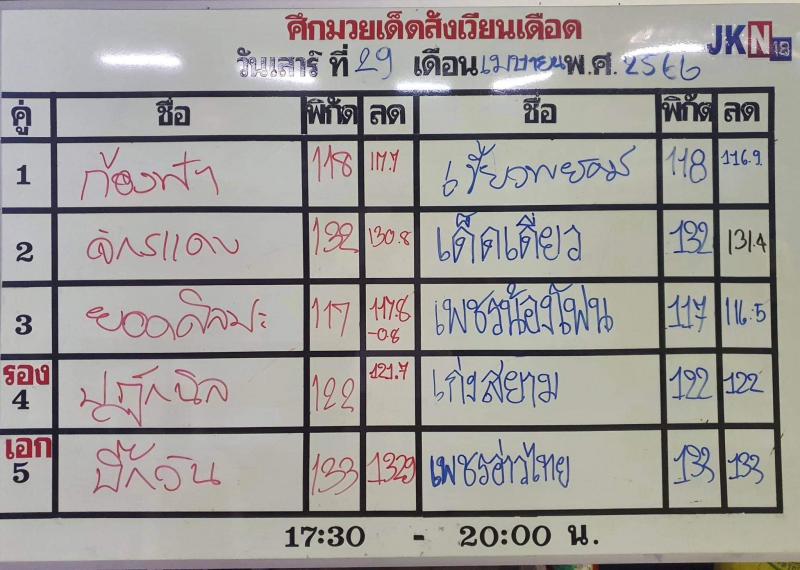 ศึกมวยเด็ดสังเวียนเดือด
JKN18
วันเสาร์ ที่ 29 เดือนเมษายน พ.ศ. 2566
คู่ ชื่อ พิกัด ลด ชื่อ พิกัด ลด
1 ก้องฟ้า 118 117.7 เขี้ยวพยัคฆ์ 118 116.9
2 132 130.8 เด็ดเดียว 132 131.4
3 ยอดศิลปะ 117 117.8 -0.8 เพชรน้องโฟน 117 116.5
รอง 4 122 121.7 เก่งสยาม 122 122
เอก 5 บิ๊กวัน 133 132.9 เพชรอ่าวไทย 133 133
17:30 - 20:00 น.